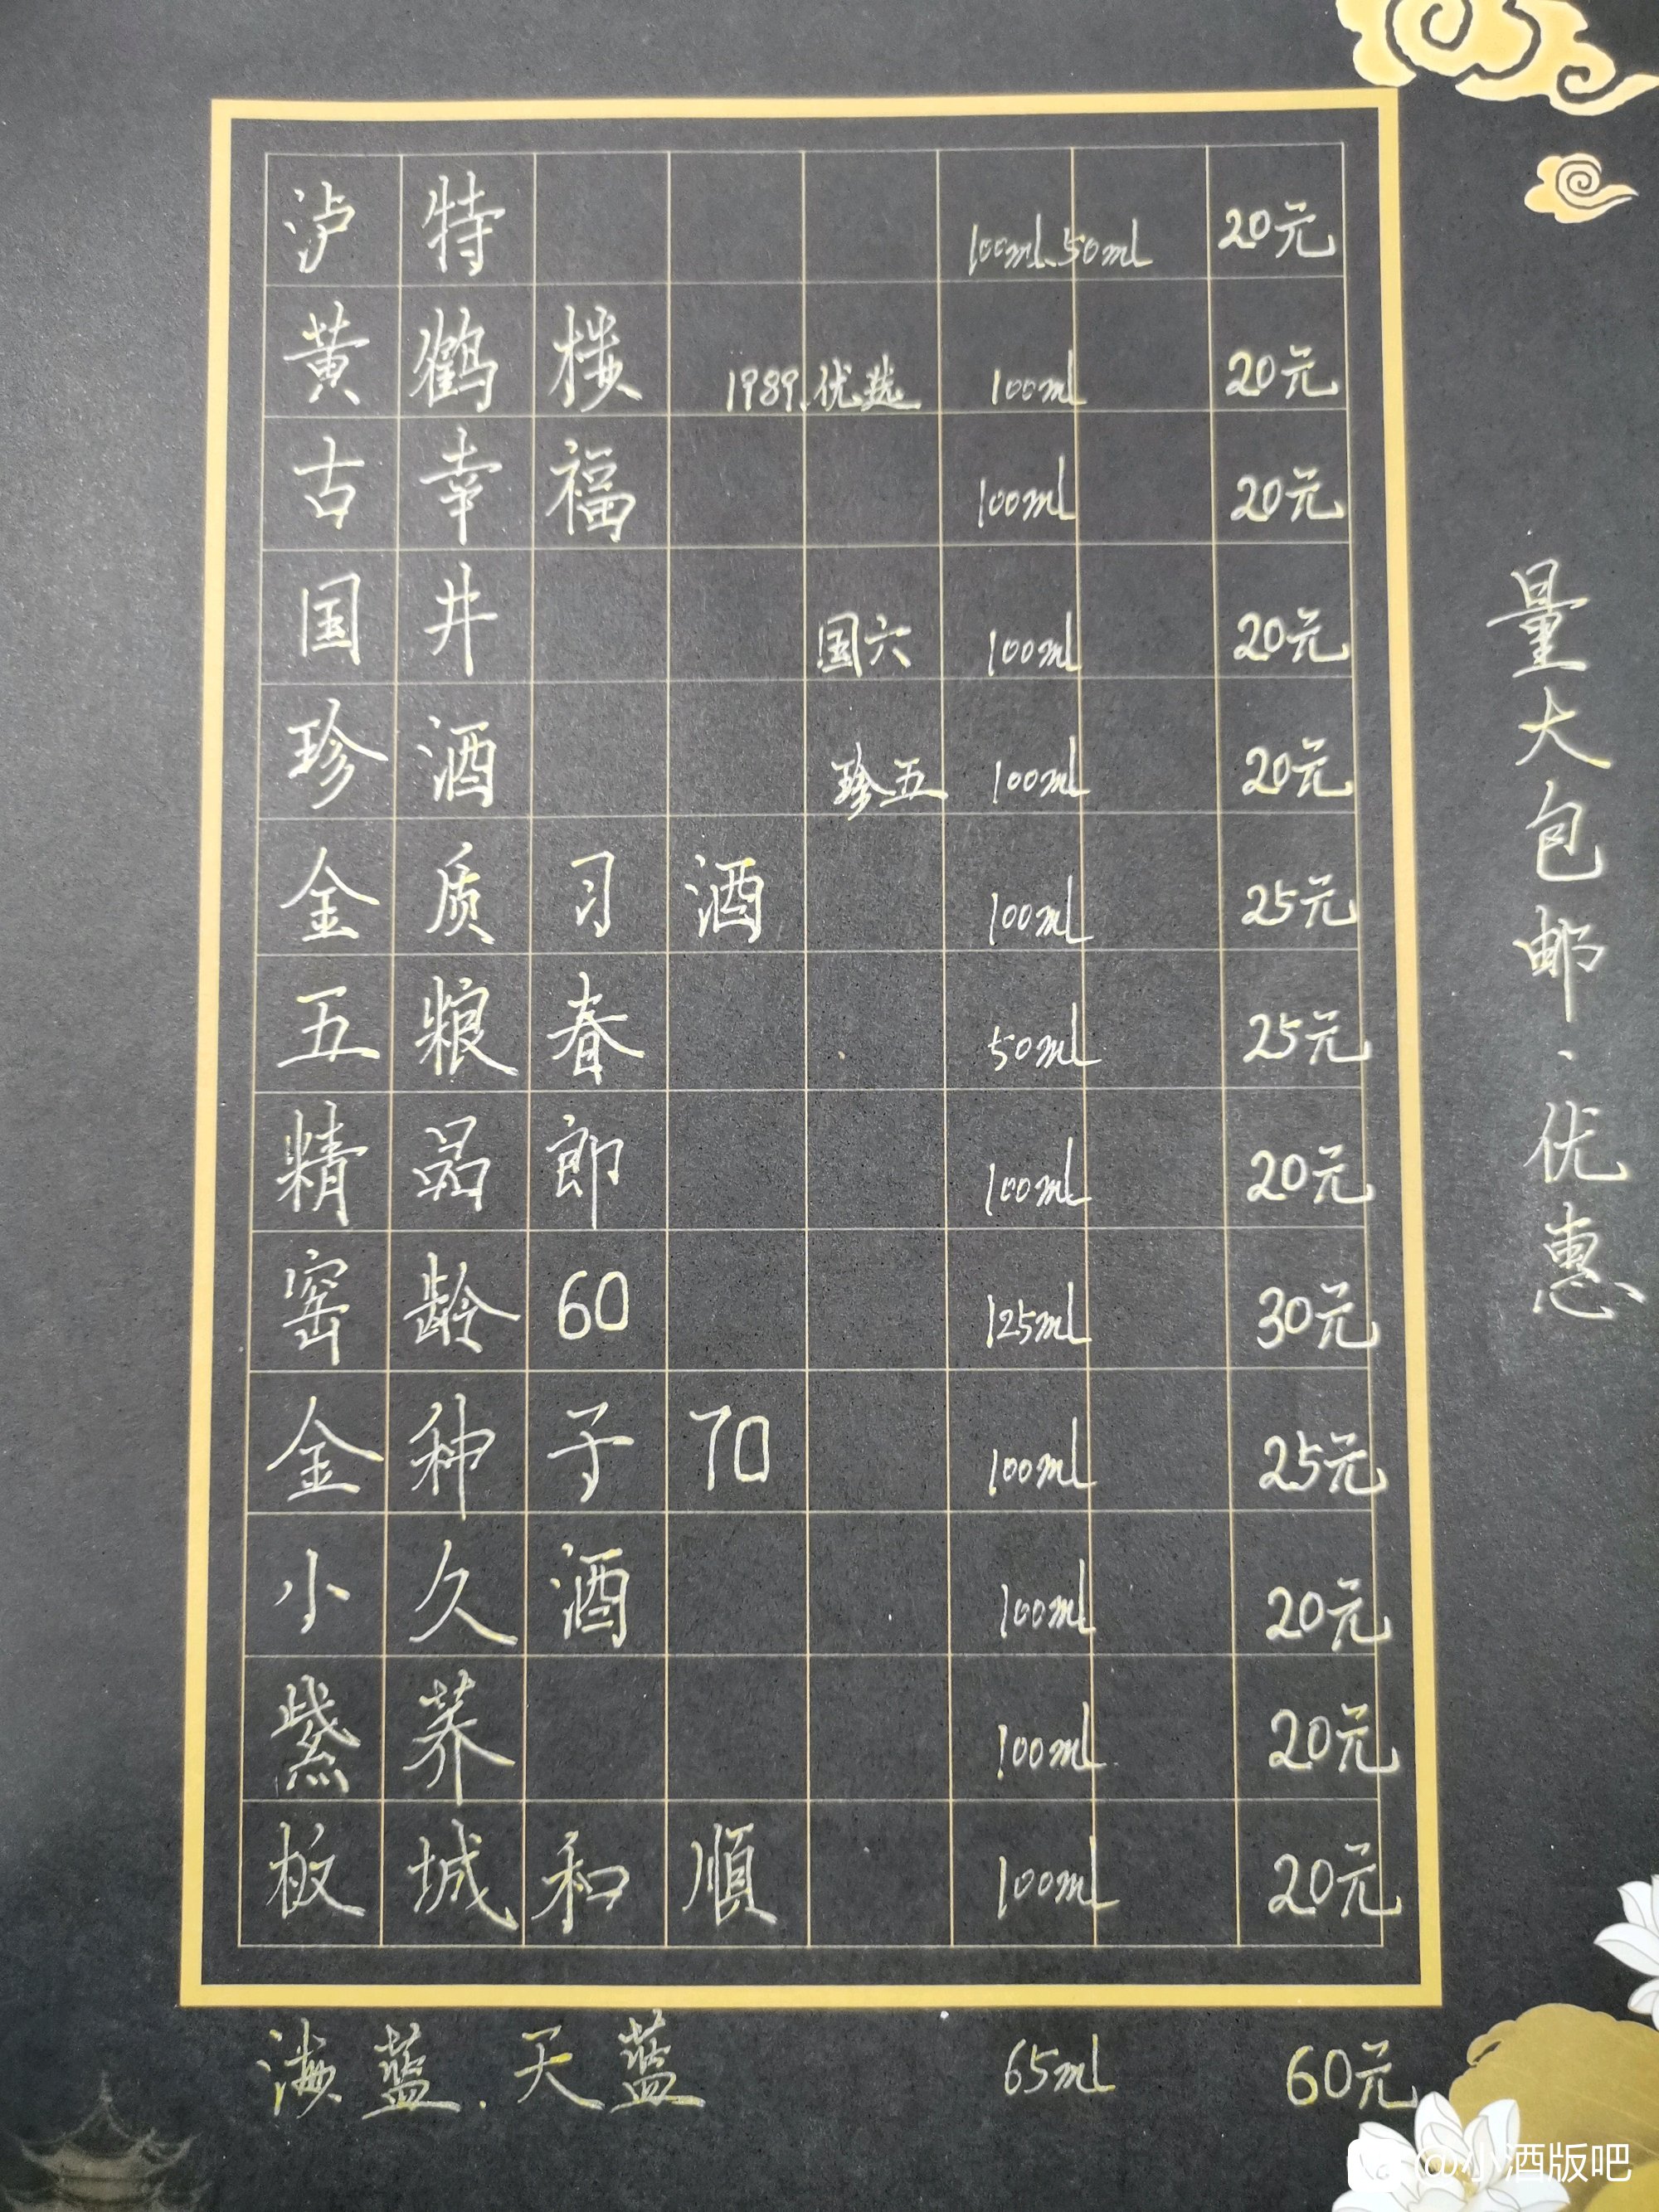 泸特 100ml.50ml 20元
黄鹤楼 1989.优选 100ml 20元
古幸福 100ml 20元
国井 国六 100ml 20元
珍酒 珍五 100ml 20元
金质习酒 100ml 25元
五粮春 50ml 25元
精品郎 100ml 20元
窑龄60 125ml 30元
金种子70 100ml 25元
小久酒 100ml 20元
紫荞 100ml 20元
板城和順 100ml 20元
海蓝.天蓝 65ml 60元
量大包邮.优惠
@小酒版吧